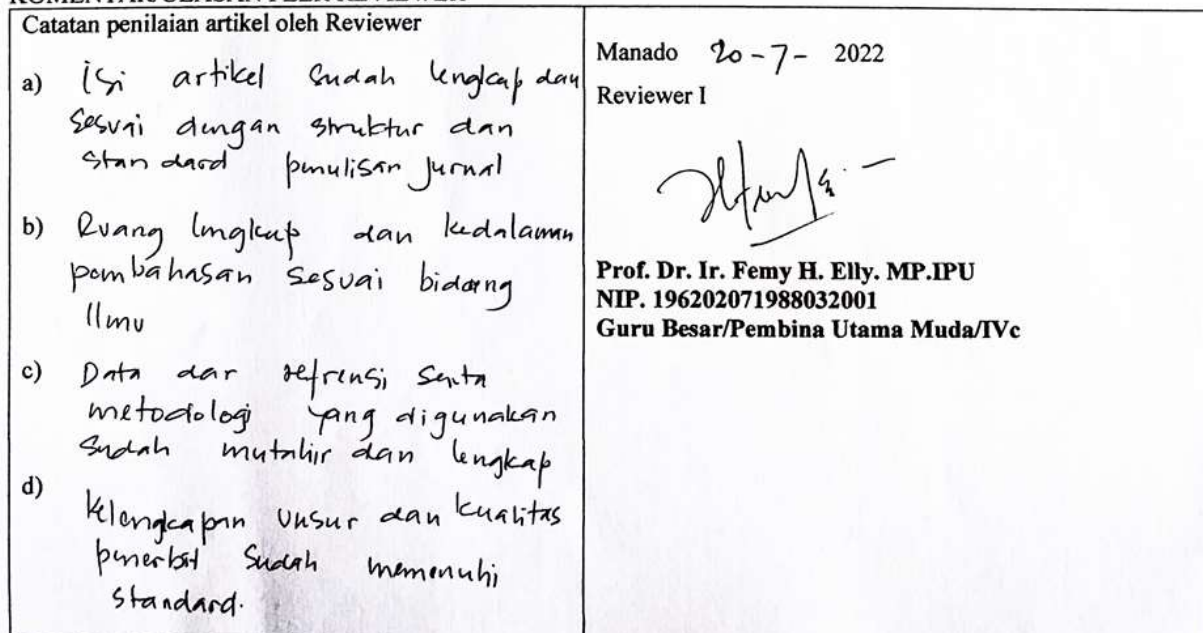 Catatan penilaian artikel oleh Reviewer
a) isi artikel sudah lengkap dan
sesuai dengan struktur dan
standard penulisan jurnal
b) Ruang lingkup dan kedalaman
pembahasan sesuai bidang
Ilmu
c) Data dar refrensi serta
metodologi yang digunakan
sudah mutahir dan lengkap
d) Kelengkapan unsur dan kualitas
penerbit sudah memenuhi
standard.
Manado 20-7- 2022
Reviewer I
Prof. Dr. Ir. Femy H. Elly. MP.IPU
NIP. 196202071988032001
Guru Besar/Pembina Utama Muda/IVc